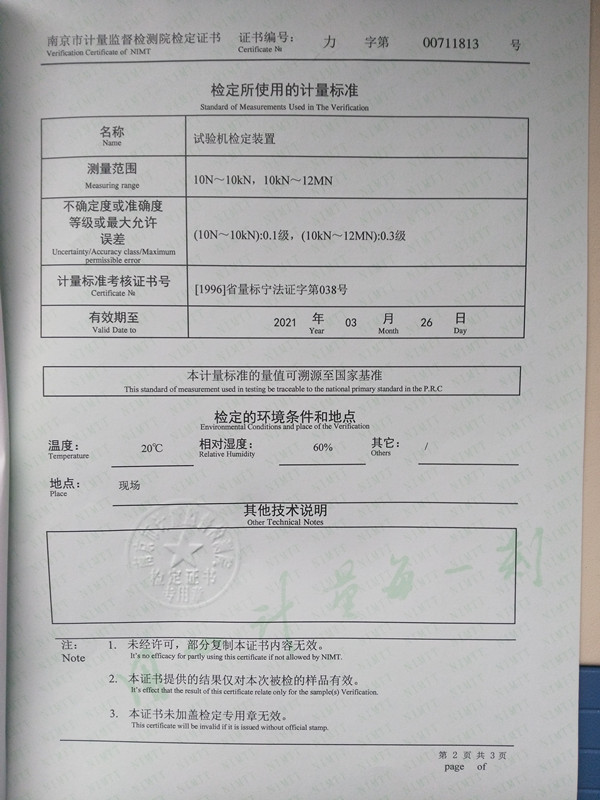 南京市计量监督检测院检定证书 证书编号： 力 字第 00711813 号
Verification Certificate of NIMT Certificate №
检定所使用的计量标准
Standard of Measurements Used in The Verification
名称 试验机检定装置
Name
测量范围 10N～10kN，10kN～12MN
Measuring range
不确定度或准确度
等级或最大允许
误差
(10N～10kN):0.1级，(10kN～12MN):0.3级
Uncertainty/Accuracy class/Maximum
permissible error
计量标准考核证书号 [1996]省量标宁法证字第038号
Certificate №
有效期至 2021 年 03 月 26 日
Valid Date to Year Month Day
本计量标准的量值可溯源至国家基准
This standard of measurement used in testing be traceable to the national primary standard in the P.R.C
检定的环境条件和地点
Environmental Conditions and place of the Verification
温度： 20℃ 相对湿度： 60% 其它： /
Temperature Relative Humidity Others
地点： 现场
Place
其他技术说明
Other Technical Notes
检定证书
专用章
计量每一刻
注： 1. 未经许可，部分复制本证书内容无效。
Note It's no efficacy for partly using this certificate if not allowed by NIMT.
2. 本证书提供的结果仅对本次被检的样品有效。
It's effect that the result of this certificate relate only for the sample(s) Verification.
3. 本证书未加盖检定专用章无效。
This certificate will be invalid if it is issued without official stamp.
第 2 页 共 3 页
page of